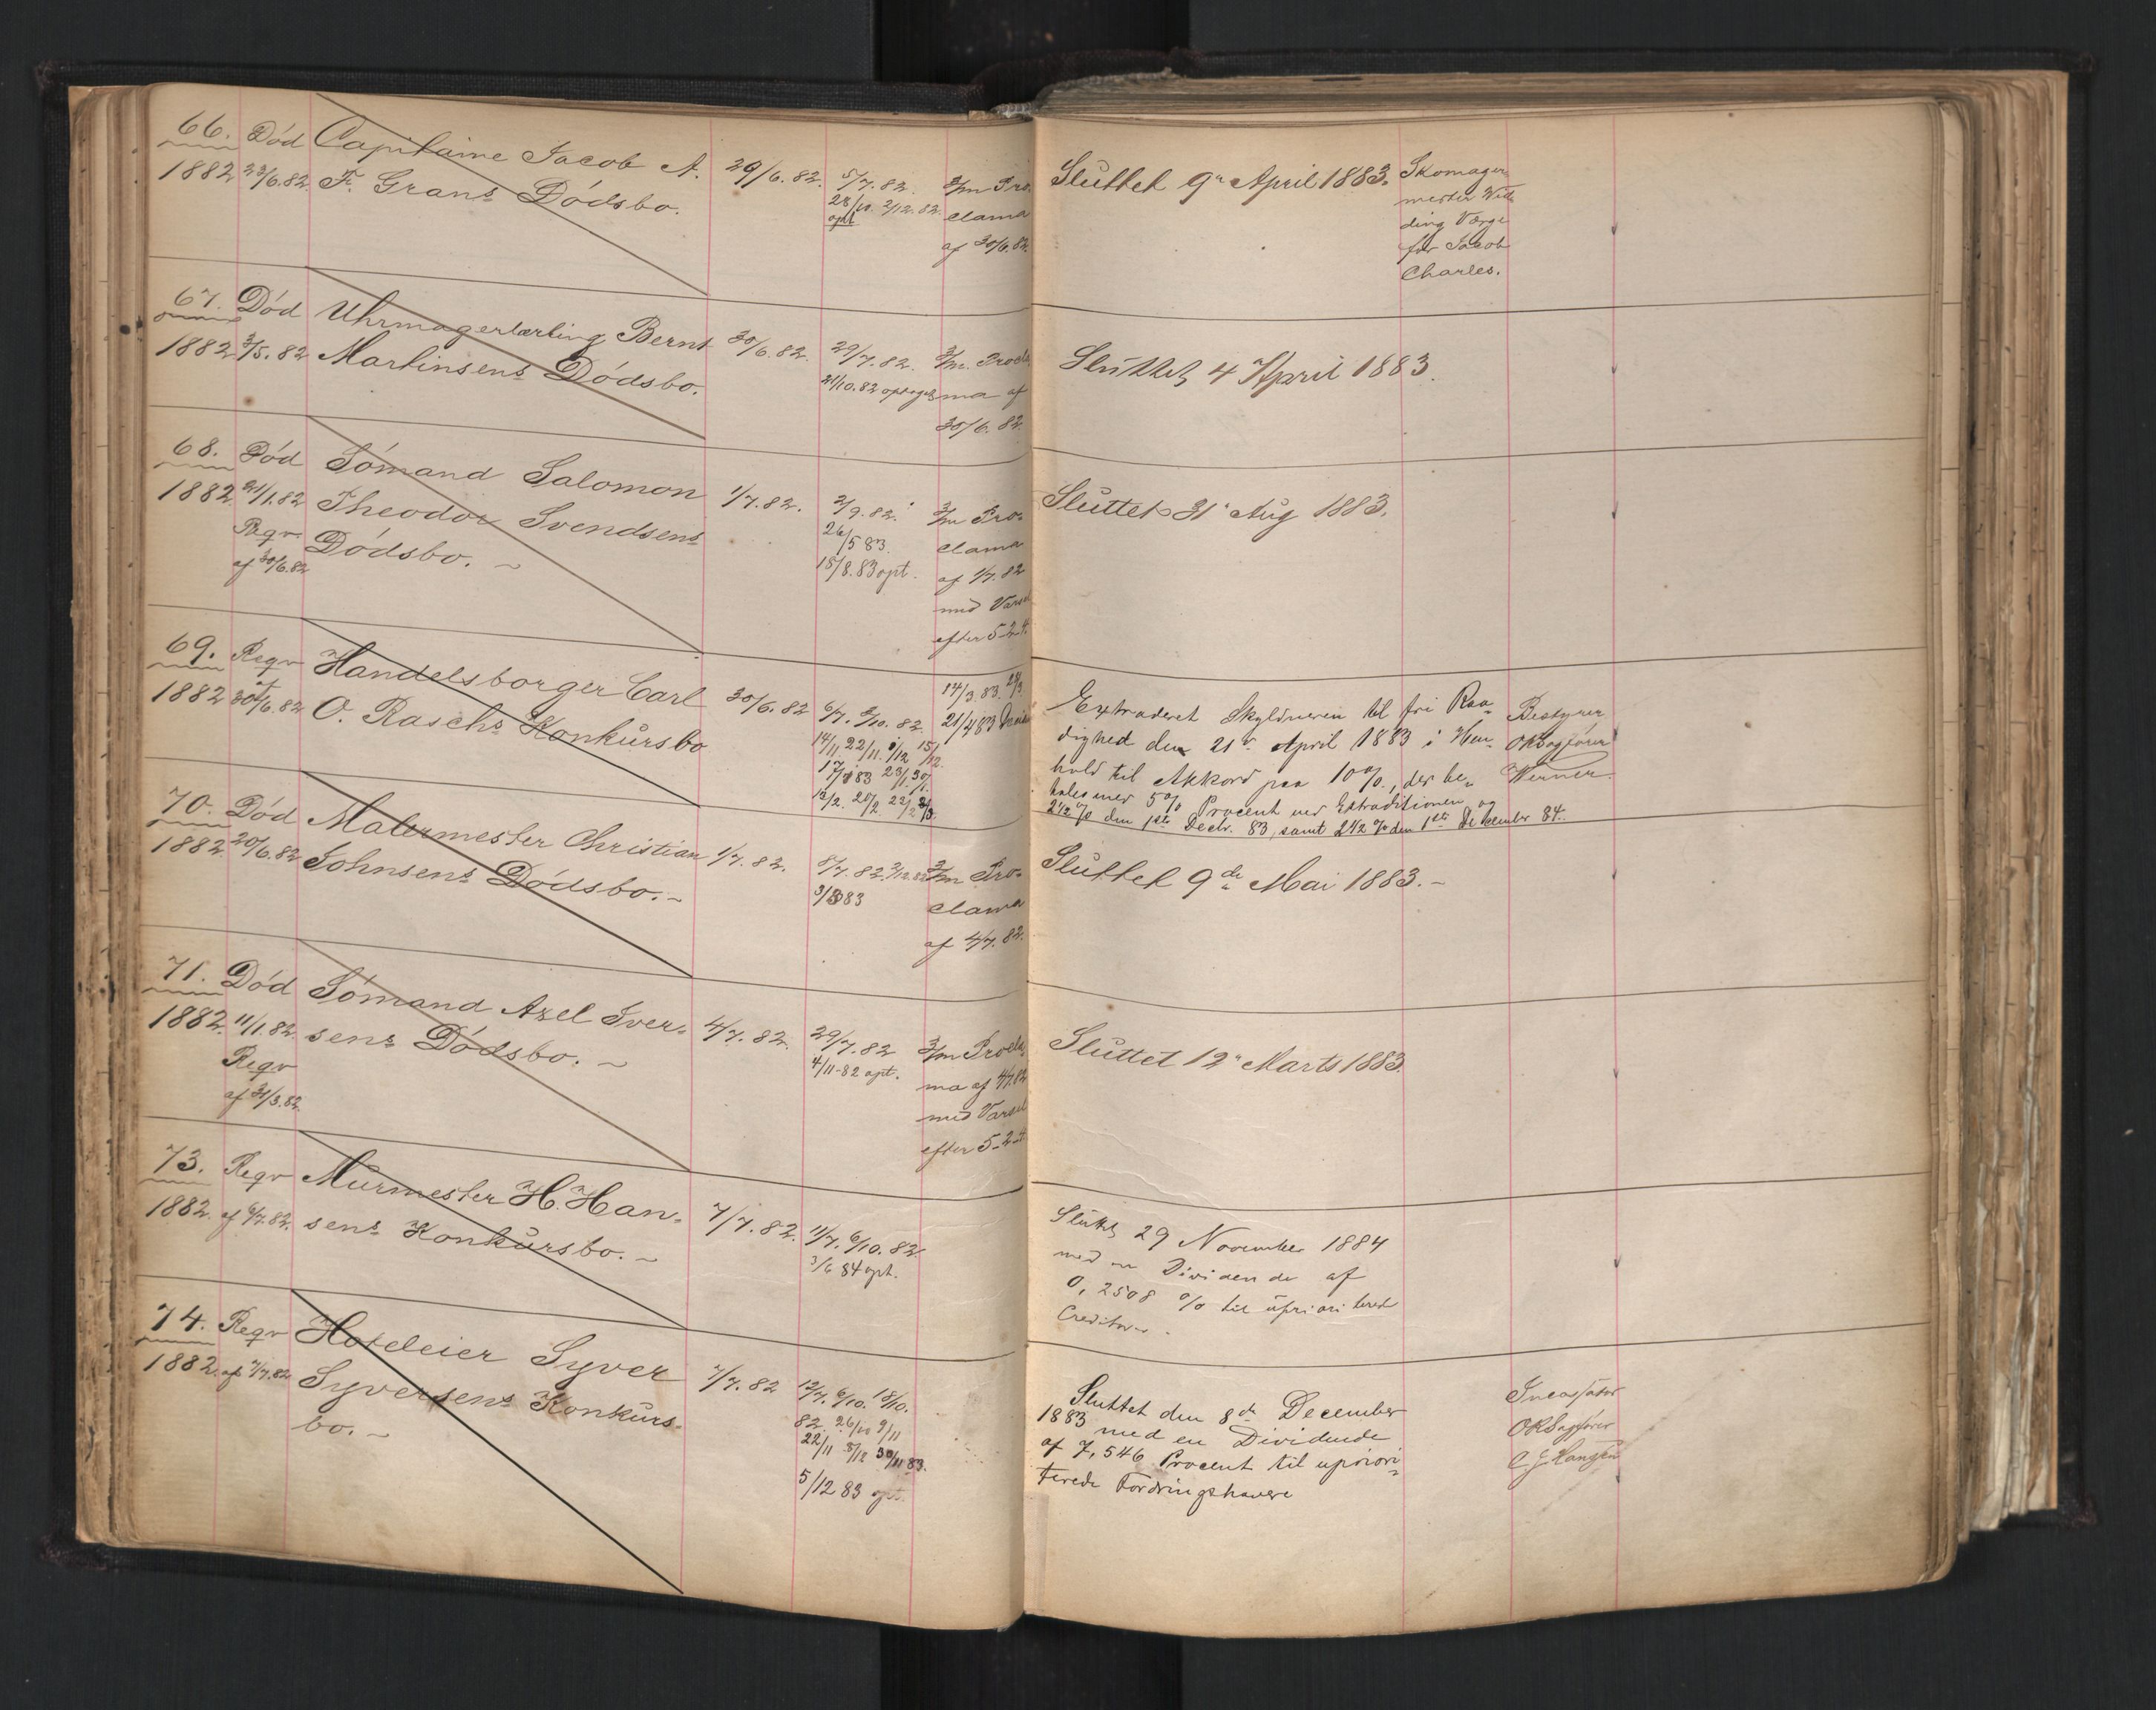 66. Død Capitaine Jacob A. 29/6.82. 5/7.82. 3/m Pro-
1882 23/6.82. F. Grans Dødsbo. 28/10. 2/12.82. clama
opt af 30/6.82.
Sluttet 9n April 1883. Skomager
mester
ding Værge
for Jacob
Charles.
67. Død Uhrmagerlærling Bernt 30/6.82. 29/7.82. 3/m. Procla
1882 3/5.82 Martinsens Dødsbo. 21/10.82 optaget ma af
30/6.82.
Sluttet 4 April 1883.
68. Død Sømand Salomon 1/7.82. 2/9.82. 3/m Pro-
1882 21/1.82 Theodor Svendsens 26/5 83. clama
Reqv. Dødsbo. 18/8.83 opt. af 1/7.82
af 30/6.82 med Varsel
efter 5-2-4.
Sluttet 31 Aug 1883.
69. Reqv Handelsborger Carl 30/6.82 6/7. 6/10.82. 14/3.83. 28/3
1882 af 30/6.82 O. Raschs Konkursbo 21/4 83
14/11 22/11. 8/12 15/12.
17/1 83 23/1. 30/1.
13/2. 20/2 22/2 2/3.
Extraderet Skyldneren til fri Raa- Bestyrer
dighed den 21de April 1883 i Hen- ORSagfører
hold til Akkord paa 10%, der be- Werner.
tales med 5% Procent ved Extraditionen og
2½ % den 1ste Decbr. 83, samt 2½ % den 1ste December 84.
70. Død Malermester Christian 1/7.82. 8/7.82. 2/12.82 3/m Pro-
1882. 20/6.82 Johnsens Dødsbo. 3/3 83 clama
af 4/7.82.
Sluttet 9de Mai 1883.
71. Død Sømand Axel Iver- 4/7.82. 29/7.82 3/m Procla
1882. 11/1.82. sens Dødsbo. 4/11-82 opt. ma af 4/7.82
Reqv med Varsel
af 31/3.82. efter 5-2-4.
Sluttet 12n Marts 1883.
73. Reqv Murmester H. Han- 7/7.82. 11/7. 6/10.82
1882. af 6/7.82. sens Konkursbo. 3/6 84 opt.
Sluttet 29 November 1884
med en Dividende af
0,2508 % til upriiteret
Creditorer.
74. Reqv Hoteleier Syver 7/7.82 12/7. 6/10. 18/10.
1882. af 7/7.82 Syversens Konkurs- 82. 26/10 9/11
bo. 22/11 8/12 30/11 83.
5/12 83 opt.
Sluttet den 8de December Incassator
1883 med en Dividende ORSagfører
af 7,546 Procent til upriori- C J Hansen
terede Fordringshavere